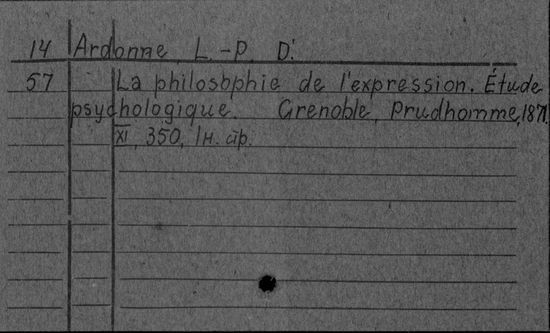 14 Ardonne, L.-P. D'.
57 La philosophie de l'expression. Étude
psychologique. Grenoble, Prudhomme, 1871.
XI, 350, 1н. стр.